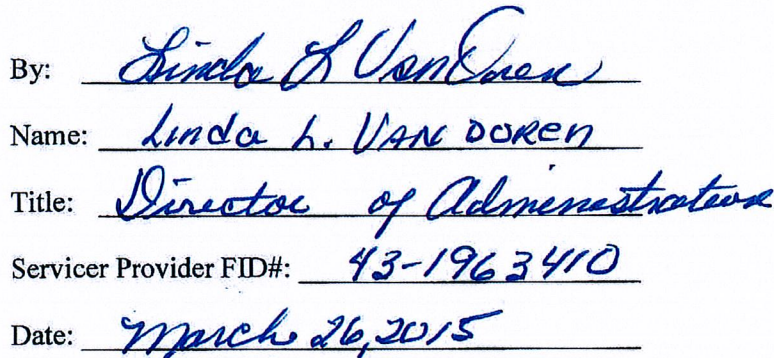 By: Linda L Van Doren
Name: Linda L. VAN DOREN
Title: Director of Administration
Servicer Provider FID#: 43-1963410
Date: March 26, 2015